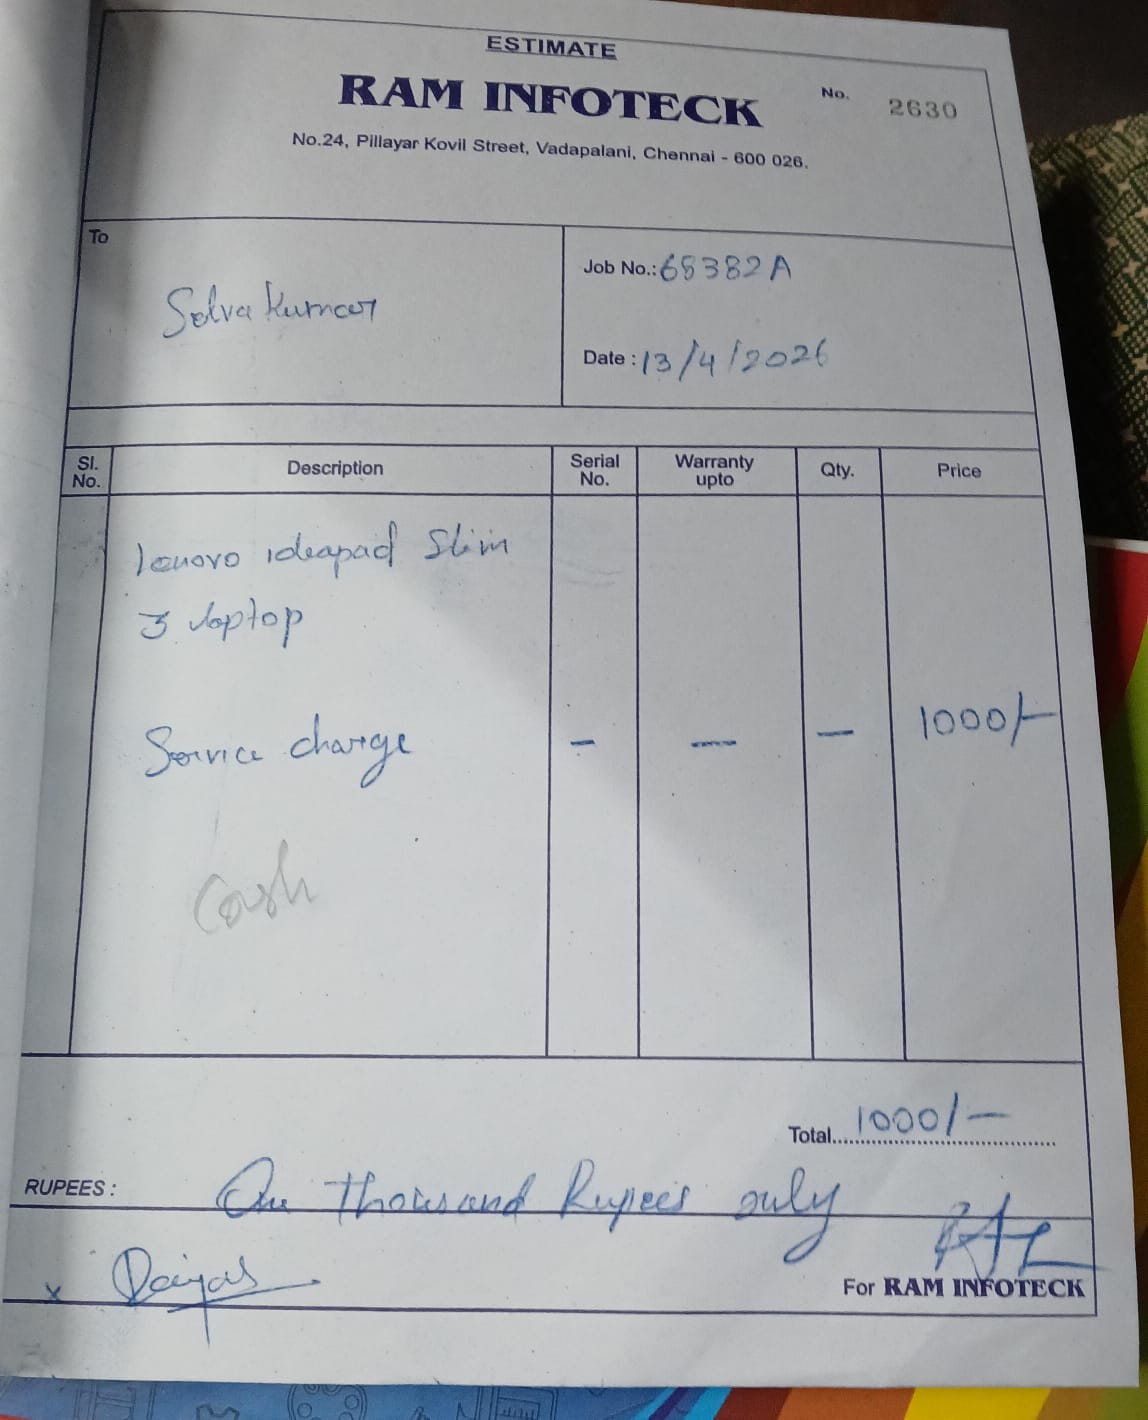 ESTIMATE
RAM INFOTECK
No. 2630
No.24, Pillayar Kovil Street, Vadapalani, Chennai - 600 026.
To
Selva Kumar
Job No.: 68382A
Date : 13/4/2026
Sl. No. Description Serial No. Warranty upto Qty. Price
Lenovo ideapad Slim
3 laptop
Service charge - - - 1000/-
Cash
Total 1000/-
RUPEES : One Thousand Rupees only
x
For RAM INFOTECK